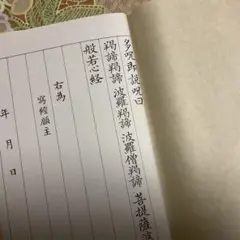 多呪即説呪曰
羯諦羯諦 波羅羯諦 波羅僧羯諦 菩提薩婆
般若心経
右為
寫經願主
年 月 日